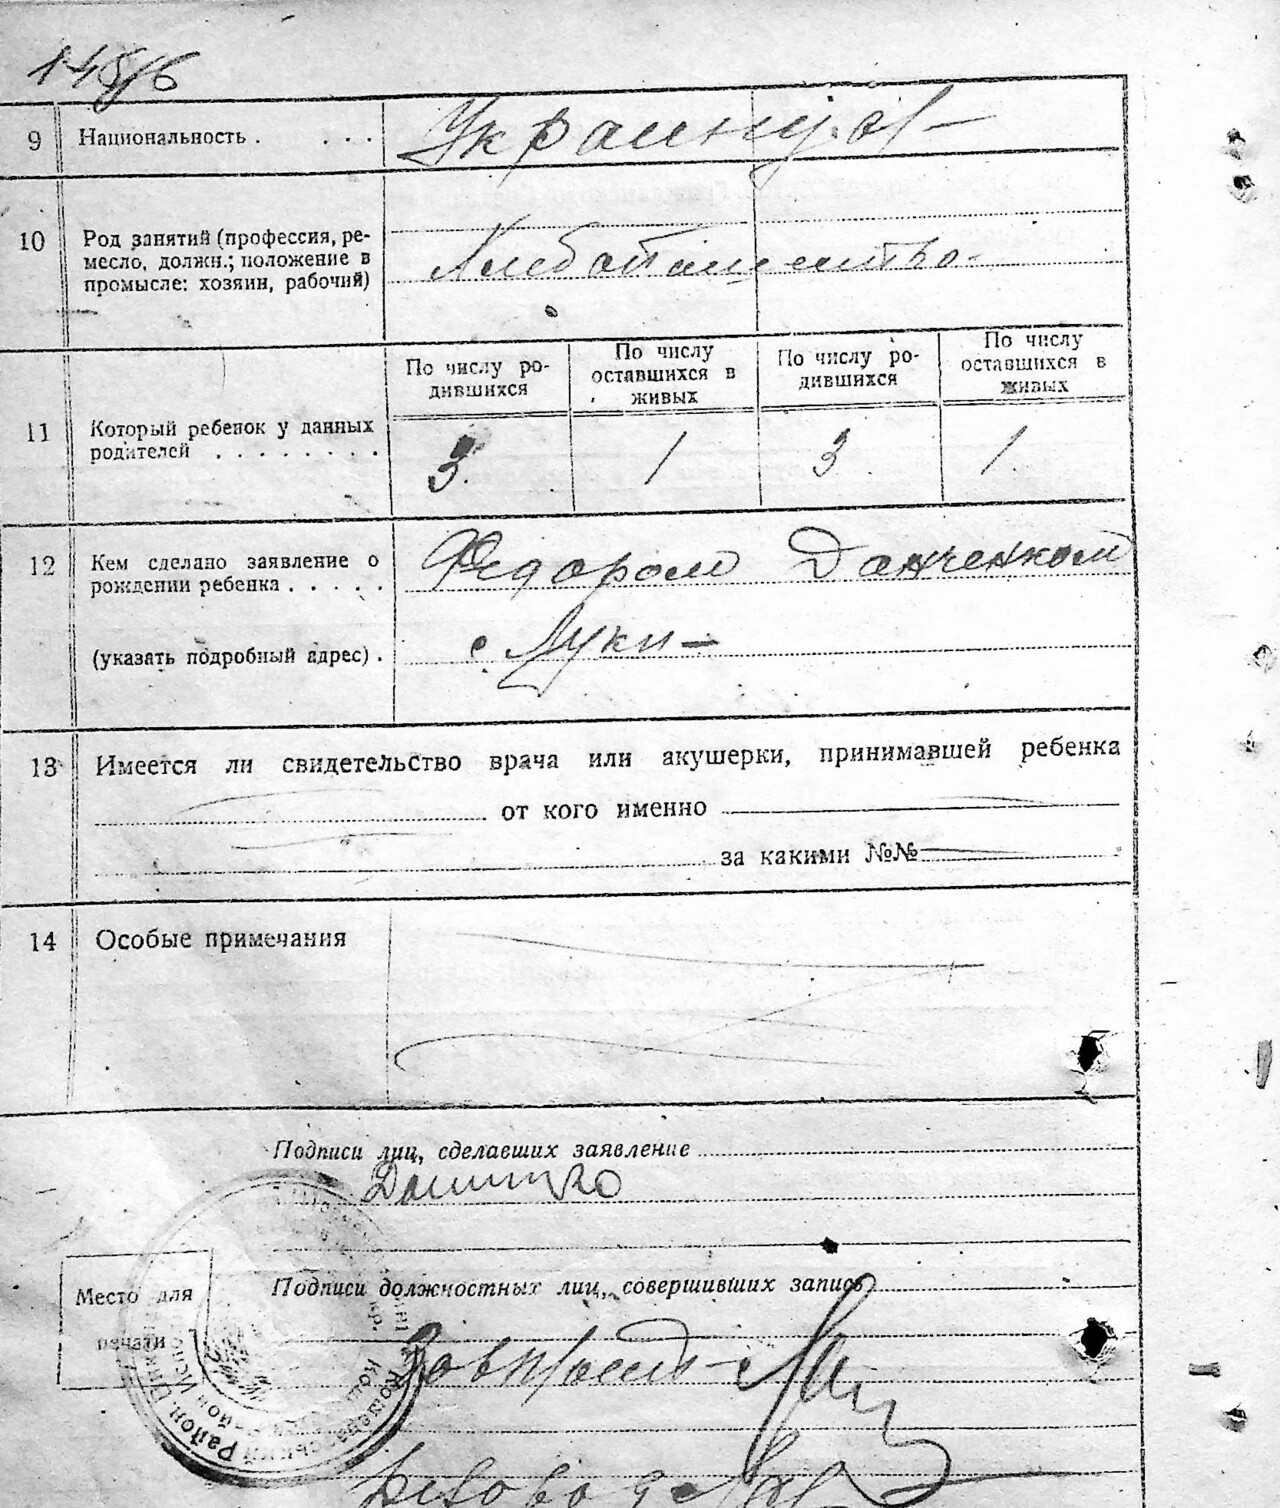 145/6
9 Национальность . . . . Украинцы
10 Род занятий (профессия, ре-
месло, должн.; положение в
промысле: хозяин, рабочий)
Хлебопашество
По числу ро-
дившихся
По числу
оставшихся в
живых
По числу ро-
дившихся
По числу
оставшихся в
живых
11 Который ребенок у данных
родителей . . . . . . . .
3. 1 3. 1.
12 Кем сделано заявление о
рождении ребенка . . . . .
Федором Данченком
(указать подробный адрес) . с. Луки
13 Имеется ли свидетельство врача или акушерки, принимавшей ребенка
от кого именно
за какими №№
14 Особые примечания
Подписи лиц, сделавших заявление
Подписи должностных лиц, совершивших запись
Место для
печати